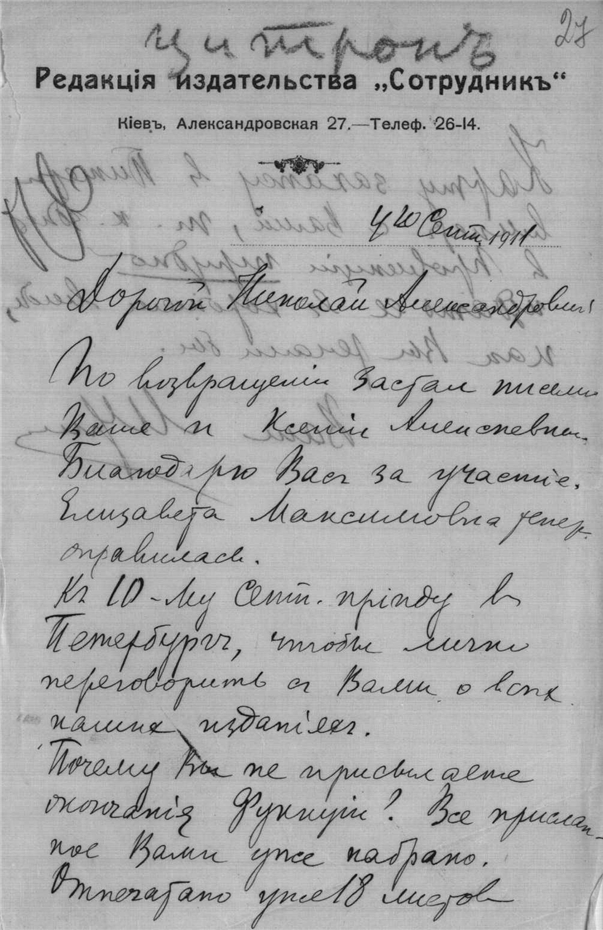 цитронъ
27
Редакція издательства „Сотрудникъ“
Кіевъ, Александровская 27.—Телеф. 26-14.
4го Сент. 1911
Дорогой Николай Александрович!
По возвращеніи застал письмо
Ваше и Ксеніи Алексѣевны.
Благодарю Васъ за участіе.
Елизавета Максимовна тепер.
оправилась.
Къ 10-му Сент. пріѣду въ
Петербургъ, чтобы лично
переговорить съ Вами о всѣх
наших изданіяхъ.
Почему Вы не присылаете
окончанія Функціи? Все прислан-
ное Вами уже набрано.
Отпечатано уже 18 листов